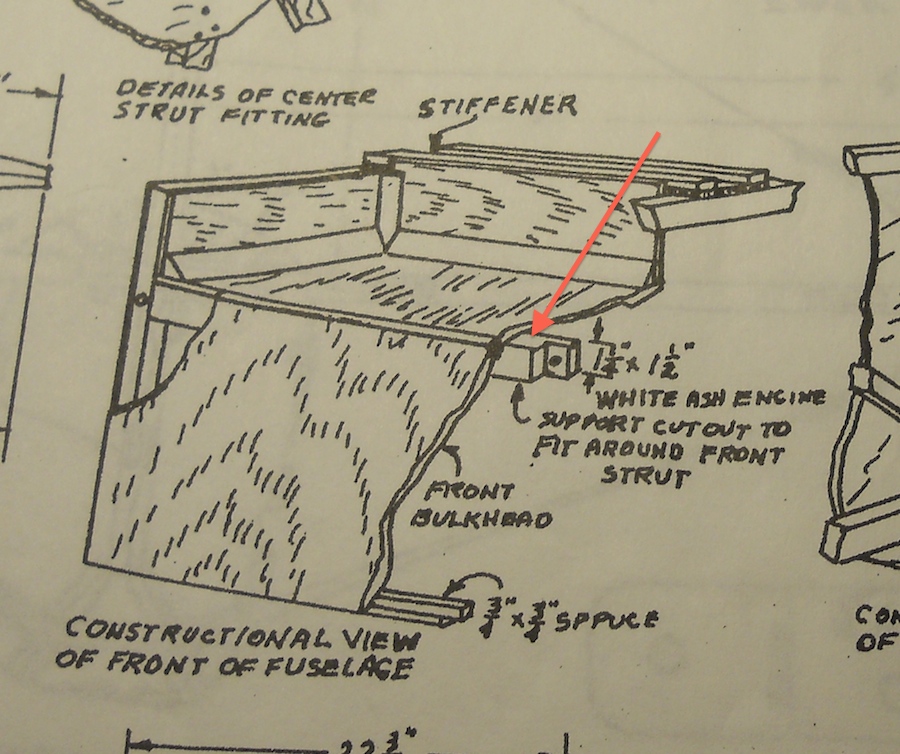 DETAILS OF CENTER
STRUT FITTING
STIFFENER
1¼" x 1½"
WHITE ASH ENGINE
SUPPORT CUTOUT TO
FIT AROUND FRONT
STRUT
FRONT
BULKHEAD
¾" x ¾" SPPUCE
CONSTRUCTIONAL VIEW
OF FRONT OF FUSELAGE
CON
OF
22 ¾"